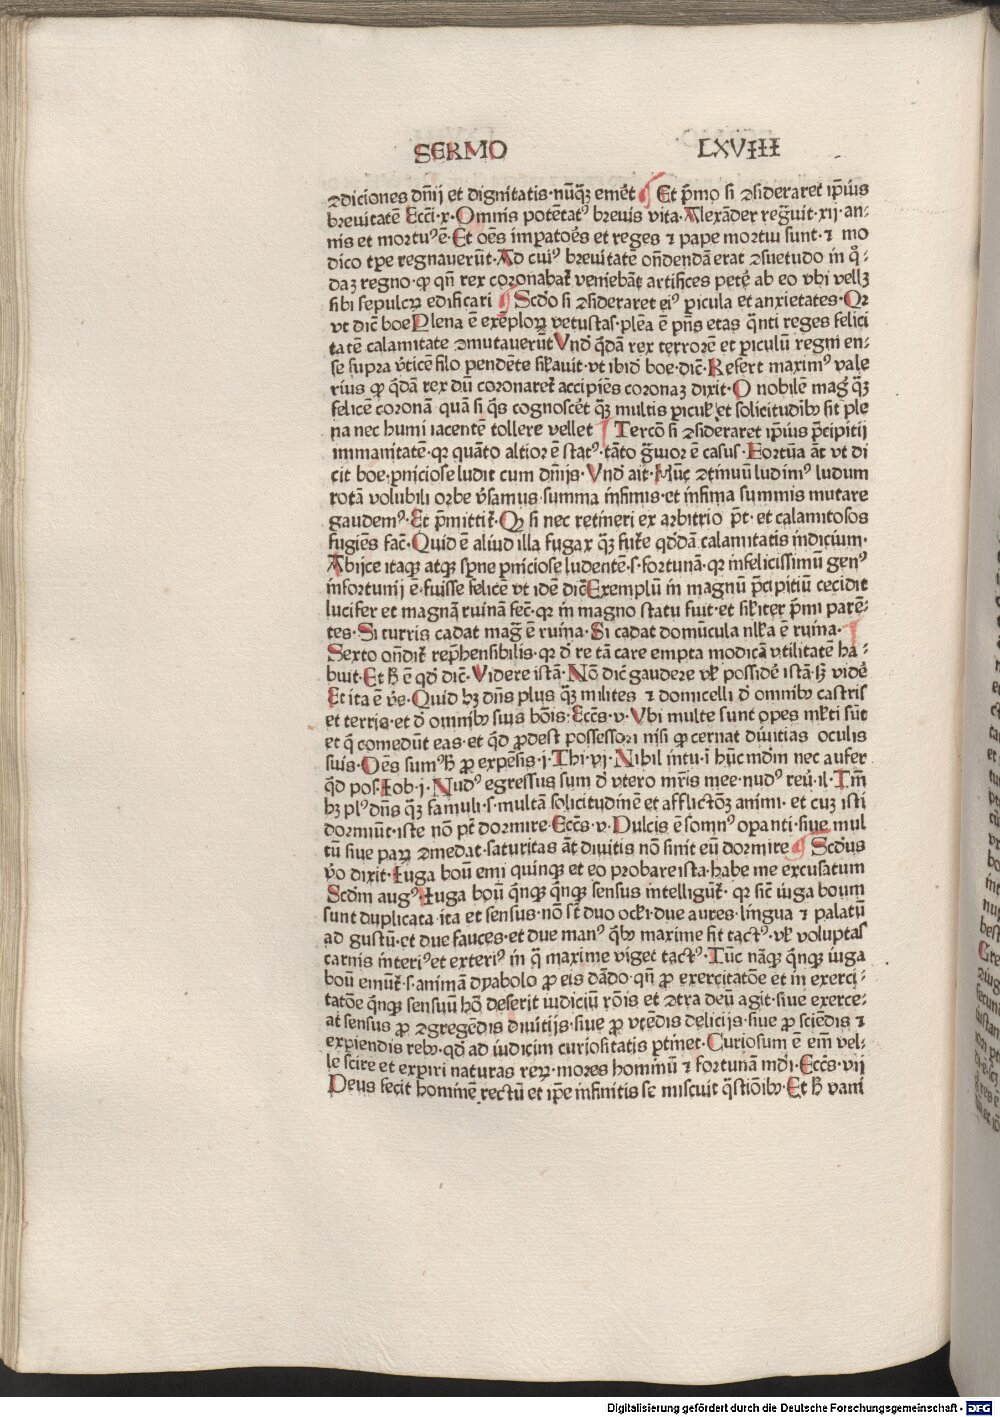 SERMO LXVIII
ꝯdiciones dn̄ij et dignitatis·nūqꝫ emēt ¶ Et pͥmo si ꝯsideraret ip̄ius
breuitatē Ecci·x·Omnis potētatꝰ breuis vita·Alexāder regͣuit·xij·an⸗
nis et mortuꝰē·Et oēs impatoēs et reges ⁊ pape mortui sunt·⁊ mo
dico tꝑe regnauerūt·Ad cuiꝰ breuitatē on̄dendā erat ꝯsuetudo in qͦ⸗
daꝫ regno·ꝙ qn̄ rex coronabat᷑ veniebāt artifices peteͬ ab eo vbi vellꝫ
sibi sepulcꝝ edificari ¶ Scd̄o si ꝯsideraret eiꝰ picula et anxietates·Qꝛ
vt dic̄ boe Plena ē exēploꝝ vetustas·plēa ē pn̄s etas qͣnti reges felici
tatē calamitate ꝯmutauerūt Vnd̄ qͥdā rex terrorē et piculū regni en⸗
se supra v̄ticē filo pendēte sil̄auit·vt ibid̄ boe·dic̄·Refert maximꝰ vale
rius ꝙ qͥdā rex dū coronaret᷑ accipiēs coronaꝫ dixit·O nobilē maḡ qͣꝫ
felicē coronā quā si qͥs cognosceͬt qͣꝫ multis picul̄ et solicitudībꝰ sit ple
na nec humi iacentē tollere vellet ¶ Tercō si ꝯsideraret ip̄ius pͥcipitij
immanitatē·qꝛ quāto altior ē statꝰ·tāto gͣuior ē casus·Fortūa āt vt di
cit boe·pniciose ludit cum dn̄ijs·Vnd̄ ait·Nūc ꝯtinuū ludimꝰ ludum
rotā volubili orbe v̄samus·summa infimis·et infima summis mutare
gaudemꝰ·Et pͥmittit᷑·Qꝫ si nec retineri ex arbitrio p̄t·et calamitosos
fugiēs fac̄·Quid ē aliud illa fugax qͣꝫ futͬe qd̄dā calamitatis indicium·
Abijce itaqꝫ atqꝫ sꝑne pniciose ludentē·s·fortunā·qꝛ infelicissimū genꝰ
infortunij ē·fuisse felicē vt idē dic̄ Exemplū in magnū pͥcipitiū cecidit
lucifer et magnā ruinā fec̄·qꝛ in magno statu fuit·et sil̄iter pͥmi parē⸗
tes·Si turris cadat mag̃ ē ruina·Si cadat domūcula nl̄la ē ruina·¶
Sexto on̄dit᷑ rep̄hensibilis·qꝛ d̄ re tā care empta modicā vtilitatē ha⸗
buit·Et h̄ ē qd̄ dic̄·Videre istā·Nō dic̄ gaudere vl̄ possideͬ istā·sꝫ videͬ
Et ita ē v̄e·Quid hꝫ dn̄s plus qͣꝫ milites ⁊ domicelli d̄ omnibꝰ castris
et terris·et d̄ omnibꝰ suis bōis·Eccēs·v·Vbi multe sunt opes ml̄ti sūt
et qͥ comedūt eas·et qͥd ꝓdest possessori nisi ꝙ cernat diuitias oculis
suis·Oēs sumꝰ h̄ ꝓ expēsis·i·Thi·vj·Nihil intu·i hūc mūdm nec aufer
qͥd pos·Iob·j·Nudꝰ egressus sum d̄ vtero mr̄is mee·nudꝰ reūͬ·il·Tm̄
hꝫ plꝰ dn̄s qͣꝫ famuli·s·multā solicitudinē et afflictōꝫ animi·et cuꝫ isti
dormiūt·iste nō pt̄ dormire·Eccēs·v·Dulcis ē somnꝰ opanti·siue mul
tū siue paꝝ ꝯmedat·saturitas āt diuitis nō sinit eū dormire ¶ Scd̄us
v̄o dixit·Iuga boū emi quinqꝫ et eo probare ista·habe me excusatum
Scd̄m augꝰ Iuga boū qͥnqꝫ qͥnqꝫ sensus intelligūt᷑·qꝛ sic̄ iuga boum
sunt duplicata ita et sensus·nō st̄ duo ocl̄i·due aures·lingua ⁊ palatū
ad gustū·et due fauces·et due manꝰ qͥbꝰ maxime fit tactꝰ·vl̄ voluptas
carnis interiꝰ et exteriꝰ in qͣ maxime viget tactꝰ·Tūc nāqꝫ qͥnqꝫ iuga
boū emūt᷑·s·animā dyabolo ꝓ eis dādo·qn̄ ꝓ exercitatōe et in exerci⸗
tatōe qͥnqꝫ sensuū hō deserit iudiciū rōis et ꝯtra deū agit·siue exerce⸗
at sensus ꝓ ꝯgregēdis diuitijs·siue ꝓ vtēdis delicijs·siue ꝓ sciēdis ⁊
expiendis rebꝰ·qd̄ ad iudicim curiositatis ptinet·Curiosum ē em̄ vel⸗
le scire et expiri naturas reꝝ·mores hominū ⁊ fortunā mūdi·Eccēs·vij
Deus fecit hominē rectū et ip̄e infinitis se miscuit qͣstiōibꝰ·Et h̄ vani
Digitalisierung gefördert durch die Deutsche Forschungsgemeinschaft - DFG